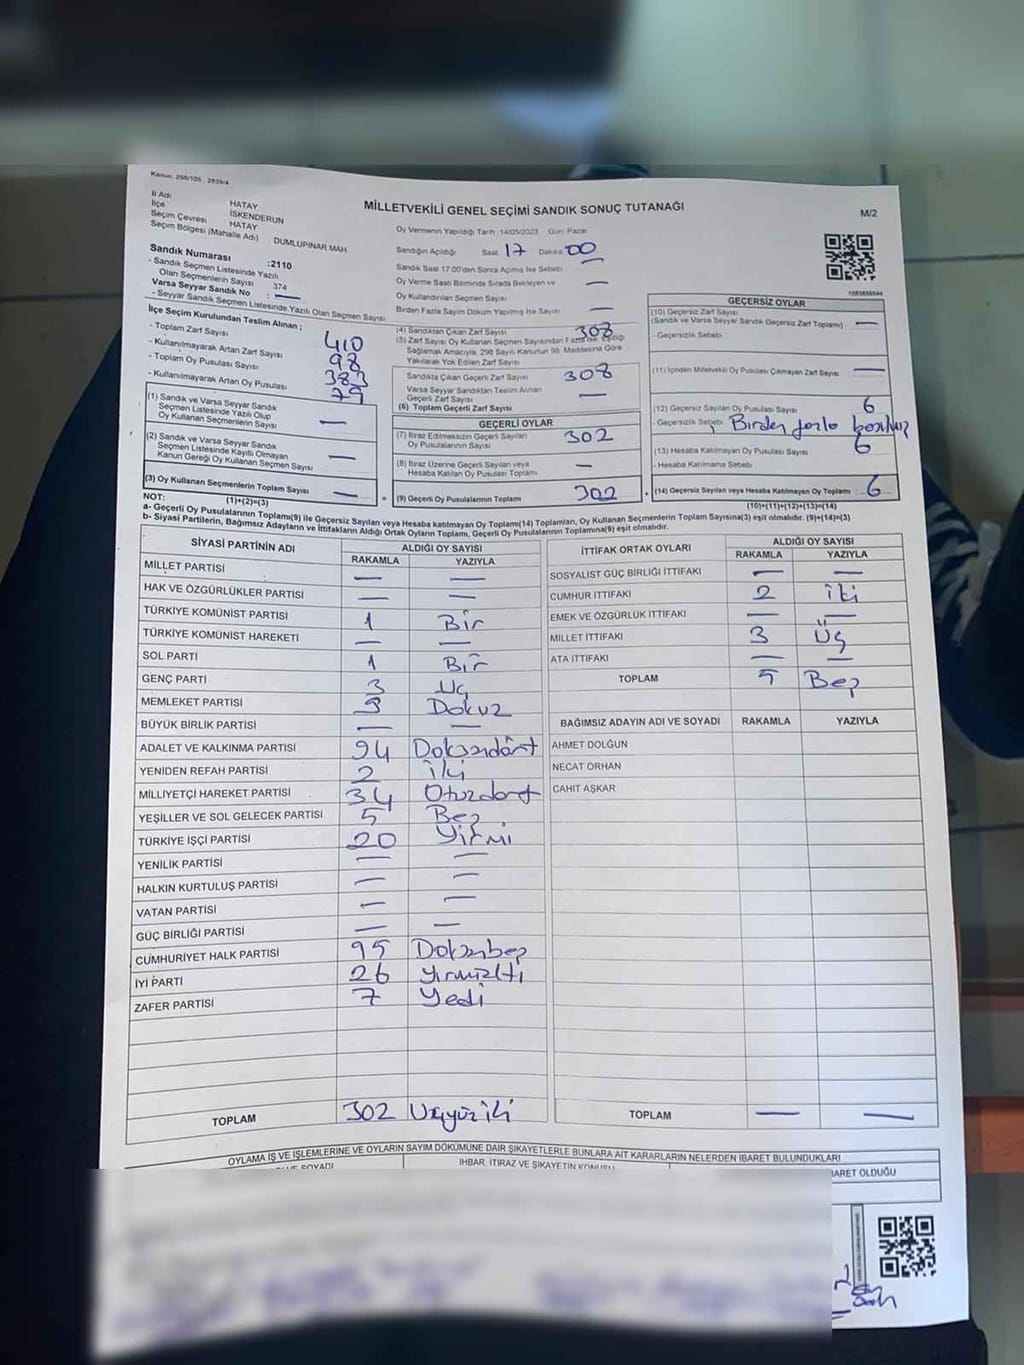 Kanun, 298/105 , 2839/4
İl Adı HATAY
İlçe İSKENDERUN
Seçim Çevresi HATAY
Seçim Bölgesi (Mahalle Adı) DUMLUPINAR MAH.
MİLLETVEKİLİ GENEL SEÇİMİ SANDIK SONUÇ TUTANAĞI
M/2
Oy Vermenin Yapıldığı Tarih: 14/05/2023 Gün: Pazar
Sandığın Açıldığı Saat 17 Dakika 00
Sandık Saat 17.00'den Sonra Açılmış İse Sebebi
Oy Verme Saati Bitiminde Sırada Bekleyen ve —
Oy Kullandırılan Seçmen Sayısı
Birden Fazla Sayım Döküm Yapılmış İse Sayısı —
Sandık Numarası :2110
- Sandık Seçmen Listesinde Yazılı
Olan Seçmenlerin Sayısı 374
Varsa Seyyar Sandık No : —
- Seyyar Sandık Seçmen Listesinde Yazılı Olan Seçmen Sayısı
İlçe Seçim Kurulundan Teslim Alınan ;
- Toplam Zarf Sayısı 410
- Kullanılmayarak Artan Zarf Sayısı 98
- Toplam Oy Pusulası Sayısı 383
- Kullanılmayarak Artan Oy Pusulası 79
(1) Sandık ve Varsa Seyyar Sandık
Seçmen Listesinde Yazılı Olup
Oy Kullanan Seçmenlerin Sayısı —
(2) Sandık ve Varsa Seyyar Sandık
Seçmen Listesinde Kayıtlı Olmayan
Kanun Gereği Oy Kullanan Seçmen Sayısı —
(3) Oy Kullanan Seçmenlerin Toplam Sayısı —
(1)+(2)=(3)
(4) Sandıktan Çıkan Zarf Sayısı 308
(5) Zarf Sayısı Oy Kullanan Seçmen Sayısından Fazla İse, Eşitliği
Sağlamak Amacıyla, 298 Sayılı Kanunun 98. Maddesine Göre
Yakılarak Yok Edilen Zarf Sayısı
Sandıkta Çıkan Geçerli Zarf Sayısı 308
Varsa Seyyar Sandıktan Teslim Alınan
Geçerli Zarf Sayısı —
(6) Toplam Geçerli Zarf Sayısı
GEÇERLİ OYLAR
(7) İtiraz Edilmeksizin Geçerli Sayılan
Oy Pusulalarının Sayısı 302
(8) İtiraz Üzerine Geçerli Sayılan veya
Hesaba Katılan Oy Pusulalarının Toplamı —
(9) Geçerli Oy Pusulalarının Toplamı 302
GEÇERSİZ OYLAR
(10) Geçersiz Zarf Sayısı
(Sandık ve Varsa Seyyar Sandık Geçersiz Zarf Toplamı) —
- Geçersizlik Sebebi
(11) İçinden Milletvekili Oy Pusulası Çıkmayan Zarf Sayısı —
(12) Geçersiz Sayılan Oy Pusulası Sayısı 6
- Geçersizlik Sebebi Birden fazla
(13) Hesaba Katılmayan Oy Pusulası Sayısı 6
- Hesaba Katılmama Sebebi
(14) Geçersiz Sayılan veya Hesaba Katılmayan Oy Toplamı 6
(10)+(11)+(12)+(13)=(14)
NOT:
a- Geçerli Oy Pusulalarının Toplamı(9) ile Geçersiz Sayılan veya Hesaba katılmayan Oy Toplamı(14) Toplamları, Oy Kullanan Seçmenlerin Toplam Sayısına(3) eşit olmalıdır. (9)+(14)=(3)
b- Siyasi Partilerin, Bağımsız Adayların ve İttifakların Aldığı Ortak Oyların Toplamı, Geçerli Oy Pusulalarının Toplamına(9) eşit olmalıdır.
SİYASİ PARTİNİN ADI ALDIĞI OY SAYISI
RAKAMLA YAZIYLA
MİLLET PARTİSİ — —
HAK VE ÖZGÜRLÜKLER PARTİSİ — —
TÜRKİYE KOMÜNİST PARTİSİ 1 Bir
TÜRKİYE KOMÜNİST HAREKETİ — —
SOL PARTİ 1 Bir
GENÇ PARTİ 3 Üç
MEMLEKET PARTİSİ 9 Dokuz
BÜYÜK BİRLİK PARTİSİ — —
ADALET VE KALKINMA PARTİSİ 94 Doksandört
YENİDEN REFAH PARTİSİ 2 İki
MİLLİYETÇİ HAREKET PARTİSİ 34 Otuzdört
YEŞİLLER VE SOL GELECEK PARTİSİ 5 Beş
TÜRKİYE İŞÇİ PARTİSİ 20 Yirmi
YENİLİK PARTİSİ — —
HALKIN KURTULUŞ PARTİSİ — —
VATAN PARTİSİ — —
GÜÇ BİRLİĞİ PARTİSİ — —
CUMHURİYET HALK PARTİSİ 95 Doksanbeş
İYİ PARTİ 26 Yirmialtı
ZAFER PARTİSİ 7 Yedi
TOPLAM 302 Üçyüziki
İTTİFAK ORTAK OYLARI ALDIĞI OY SAYISI
RAKAMLA YAZIYLA
SOSYALİST GÜÇ BİRLİĞİ İTTİFAKI — —
CUMHUR İTTİFAKI 2 İki
EMEK VE ÖZGÜRLÜK İTTİFAKI — —
MİLLET İTTİFAKI 3 Üç
ATA İTTİFAKI — —
TOPLAM 5 Beş
BAĞIMSIZ ADAYIN ADI VE SOYADI RAKAMLA YAZIYLA
AHMET DOLĞUN
NECAT ORHAN
CAHİT AŞKAR
TOPLAM — —
OYLAMA İŞ VE İŞLEMLERİNE VE OYLARIN SAYIM DÖKÜMÜNE DAİR ŞİKAYETLERLE BUNLARA AİT KARARLARIN NELERDEN İBARET BULUNDUKLARI
SOYADI İHBAR, İTİRAZ VE ŞİKAYETİN KONUSU BARET OLDUĞU